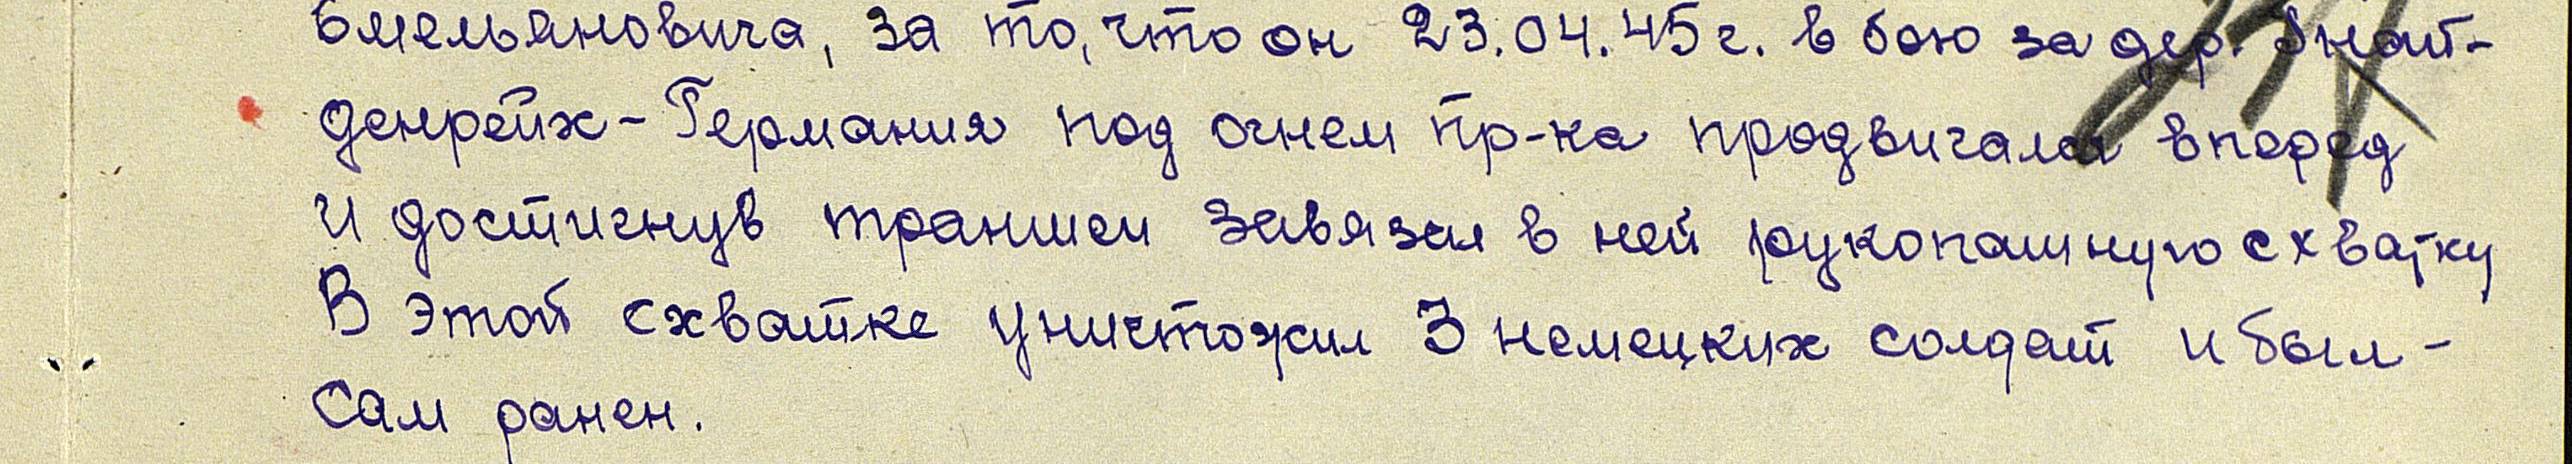 Емельяновича, за то, что он 23.04.45г. в бою за дер. Гнай-
денрейх-Германия под огнем пр-ка продвигался вперед
и достигнув траншеи завязал в ней рукопашную схватку
В этой схватке уничтожил 3 немецких солдат и был-
сам ранен.